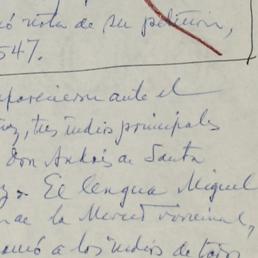 ó nota de su petición,
547.
aparecieron ante el
ez, tres indios principales
don Andrés de Santa
z». El lengua Miguel
de la Merced
a los indios de